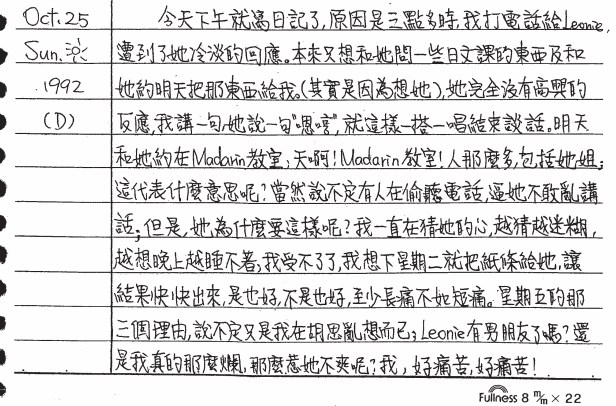 Oct. 25 今天下午就寫日記了,原因是三點多時,我打電話給Leonie,
Sun. 遭到了她冷淡的回應。本來又想和她問一些日文課的東西及和
1992 她約明天把那東西給我。(其實是因為想她),她完全沒有高興的
(D) 反應,我講一句,她說一句"恩哼",就這樣一搭一唱結束談話。明天
和她約在Madarin教室;天啊!Madarin教室!人那麼多,包括她姐;
這代表什麼意思呢?當然說不定有人在偷聽電話,逼她不敢亂講
話;但是,她為什麼要這樣呢?我一直在猜她的心,越猜越迷糊,
越想晚上越睡不著,我受不了了,我想下星期二就把紙條給她,讓
結果快快出來,是也好,不是也好,至少長痛不如短痛。星期五的那
三個理由,說不定又是我在胡思亂想而已;Leonie有男朋友了嗎?還
是我真的那麼爛,那麼惹她不爽呢?我,好痛苦,好痛苦!
Fullness 8 m/m × 22